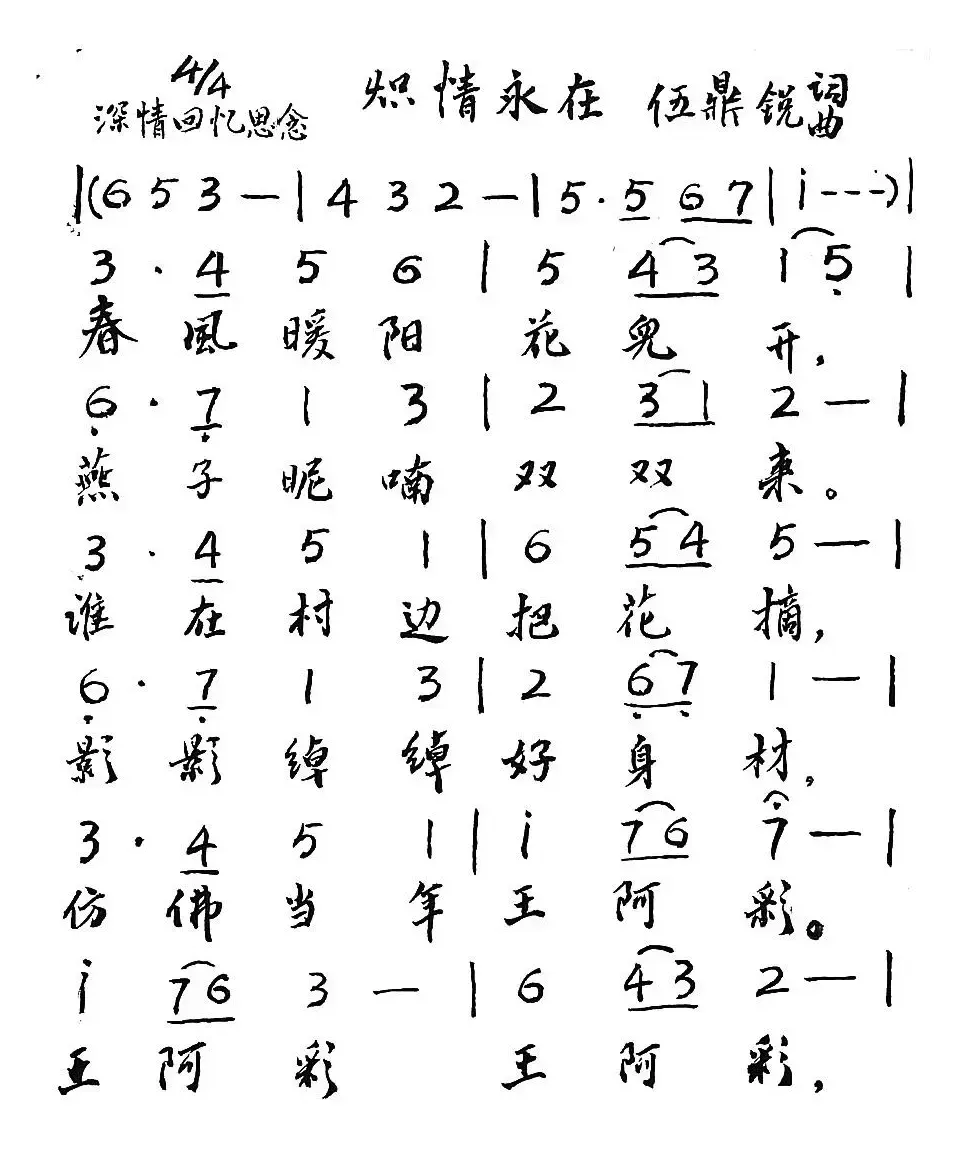 4/4 炽情永在 伍鼎锐 词曲
深情回忆思念
|(6 5 3 — | 4 3 2 — | 5 · 5 6 7 | i - - - )|
3 · 4 5 6 | 5 4 3 1 5 |
春風暖阳花兒开，
6 · 7 1 3 | 2 3 1 2 — |
燕子昵喃双双来。
3 · 4 5 1 | 6 5 4 5 — |
谁在村边把花摘，
6 · 7 1 3 | 2 6 7 1 — |
影影绰绰好身材，
3 · 4 5 1 | i 7 6 7 — |
仿佛当年王阿彩。
i 7 6 3 — | 6 4 3 2 — |
王阿彩 王阿彩，